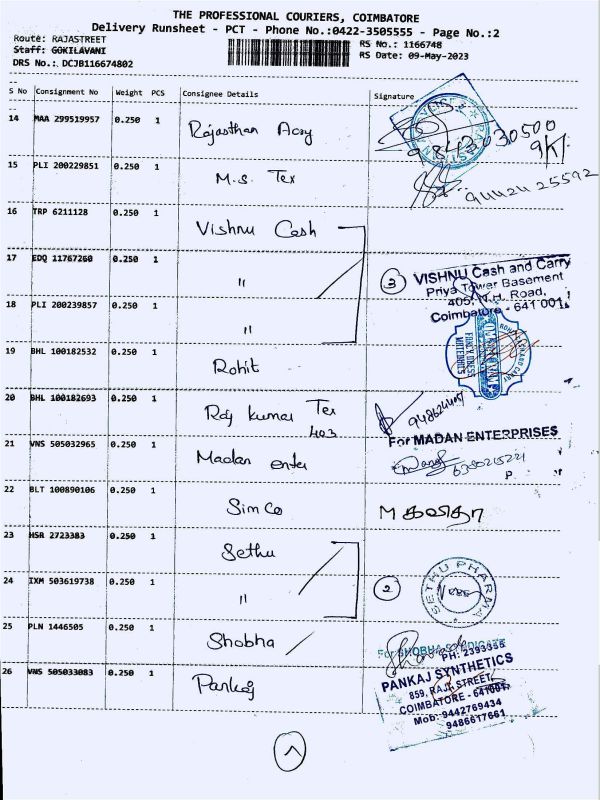 THE PROFESSIONAL COURIERS, COIMBATORE
Delivery Runsheet - PCT - Phone No.:0422-3505555 - Page No.:2
Route: RAJASTREET
Staff: GOKILAVANI
DRS No.: DCJB116674802
RS No.: 1166748
RS Date: 09-May-2023
S No Consignment No Weight PCS Consignee Details Signature
14 MAA 299519957 0.250 1 Rajasthan 9843030500
15 PLI 200229851 0.250 1 M.S. Tex 9442425592
16 TRP 6211128 0.250 1 Vishnu Cash
17 EDQ 11767260 0.250 1 "
3 VISHNU Cash and Carry
Priya Tower Basement
405, N.H. Road,
Coimbatore - 641 001.
18 PLI 200239857 0.250 1 "
19 BHL 100182532 0.250 1 Rohit
20 BHL 100182693 0.250 1 Raj Kumar Tex
403
For MADAN ENTERPRISES
21 VNS 505032965 0.250 1 Madan enter
22 BLT 100890106 0.250 1 Simco M கவிதா
23 HSR 2723383 0.250 1 Sethu
24 IXM 503619738 0.250 1 " 2 SETHU PHARMA
25 PLN 1446505 0.250 1 Shobha
PH: 2393355
26 VNS 505033083 0.250 1 Pankaj
PANKAJ SYNTHETICS
859, RAJA STREET,
COIMBATORE - 641001.
Mob: 9442769434
9486617661